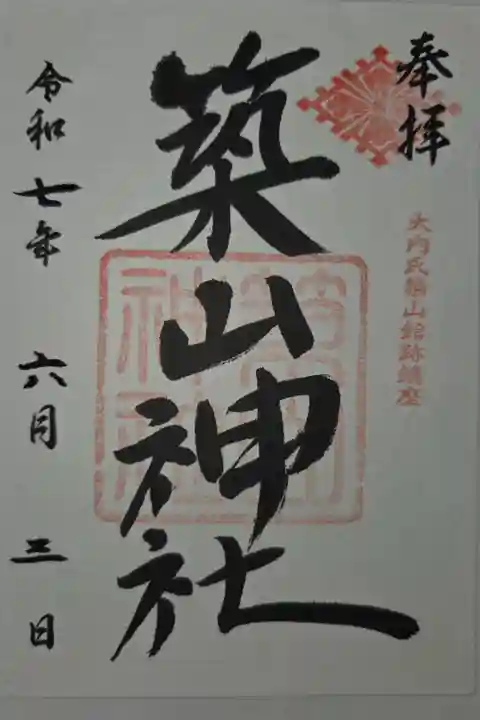 奉拝
大内氏築山館跡鎮座
築山神社
令和七年 六月 三日
築山神社